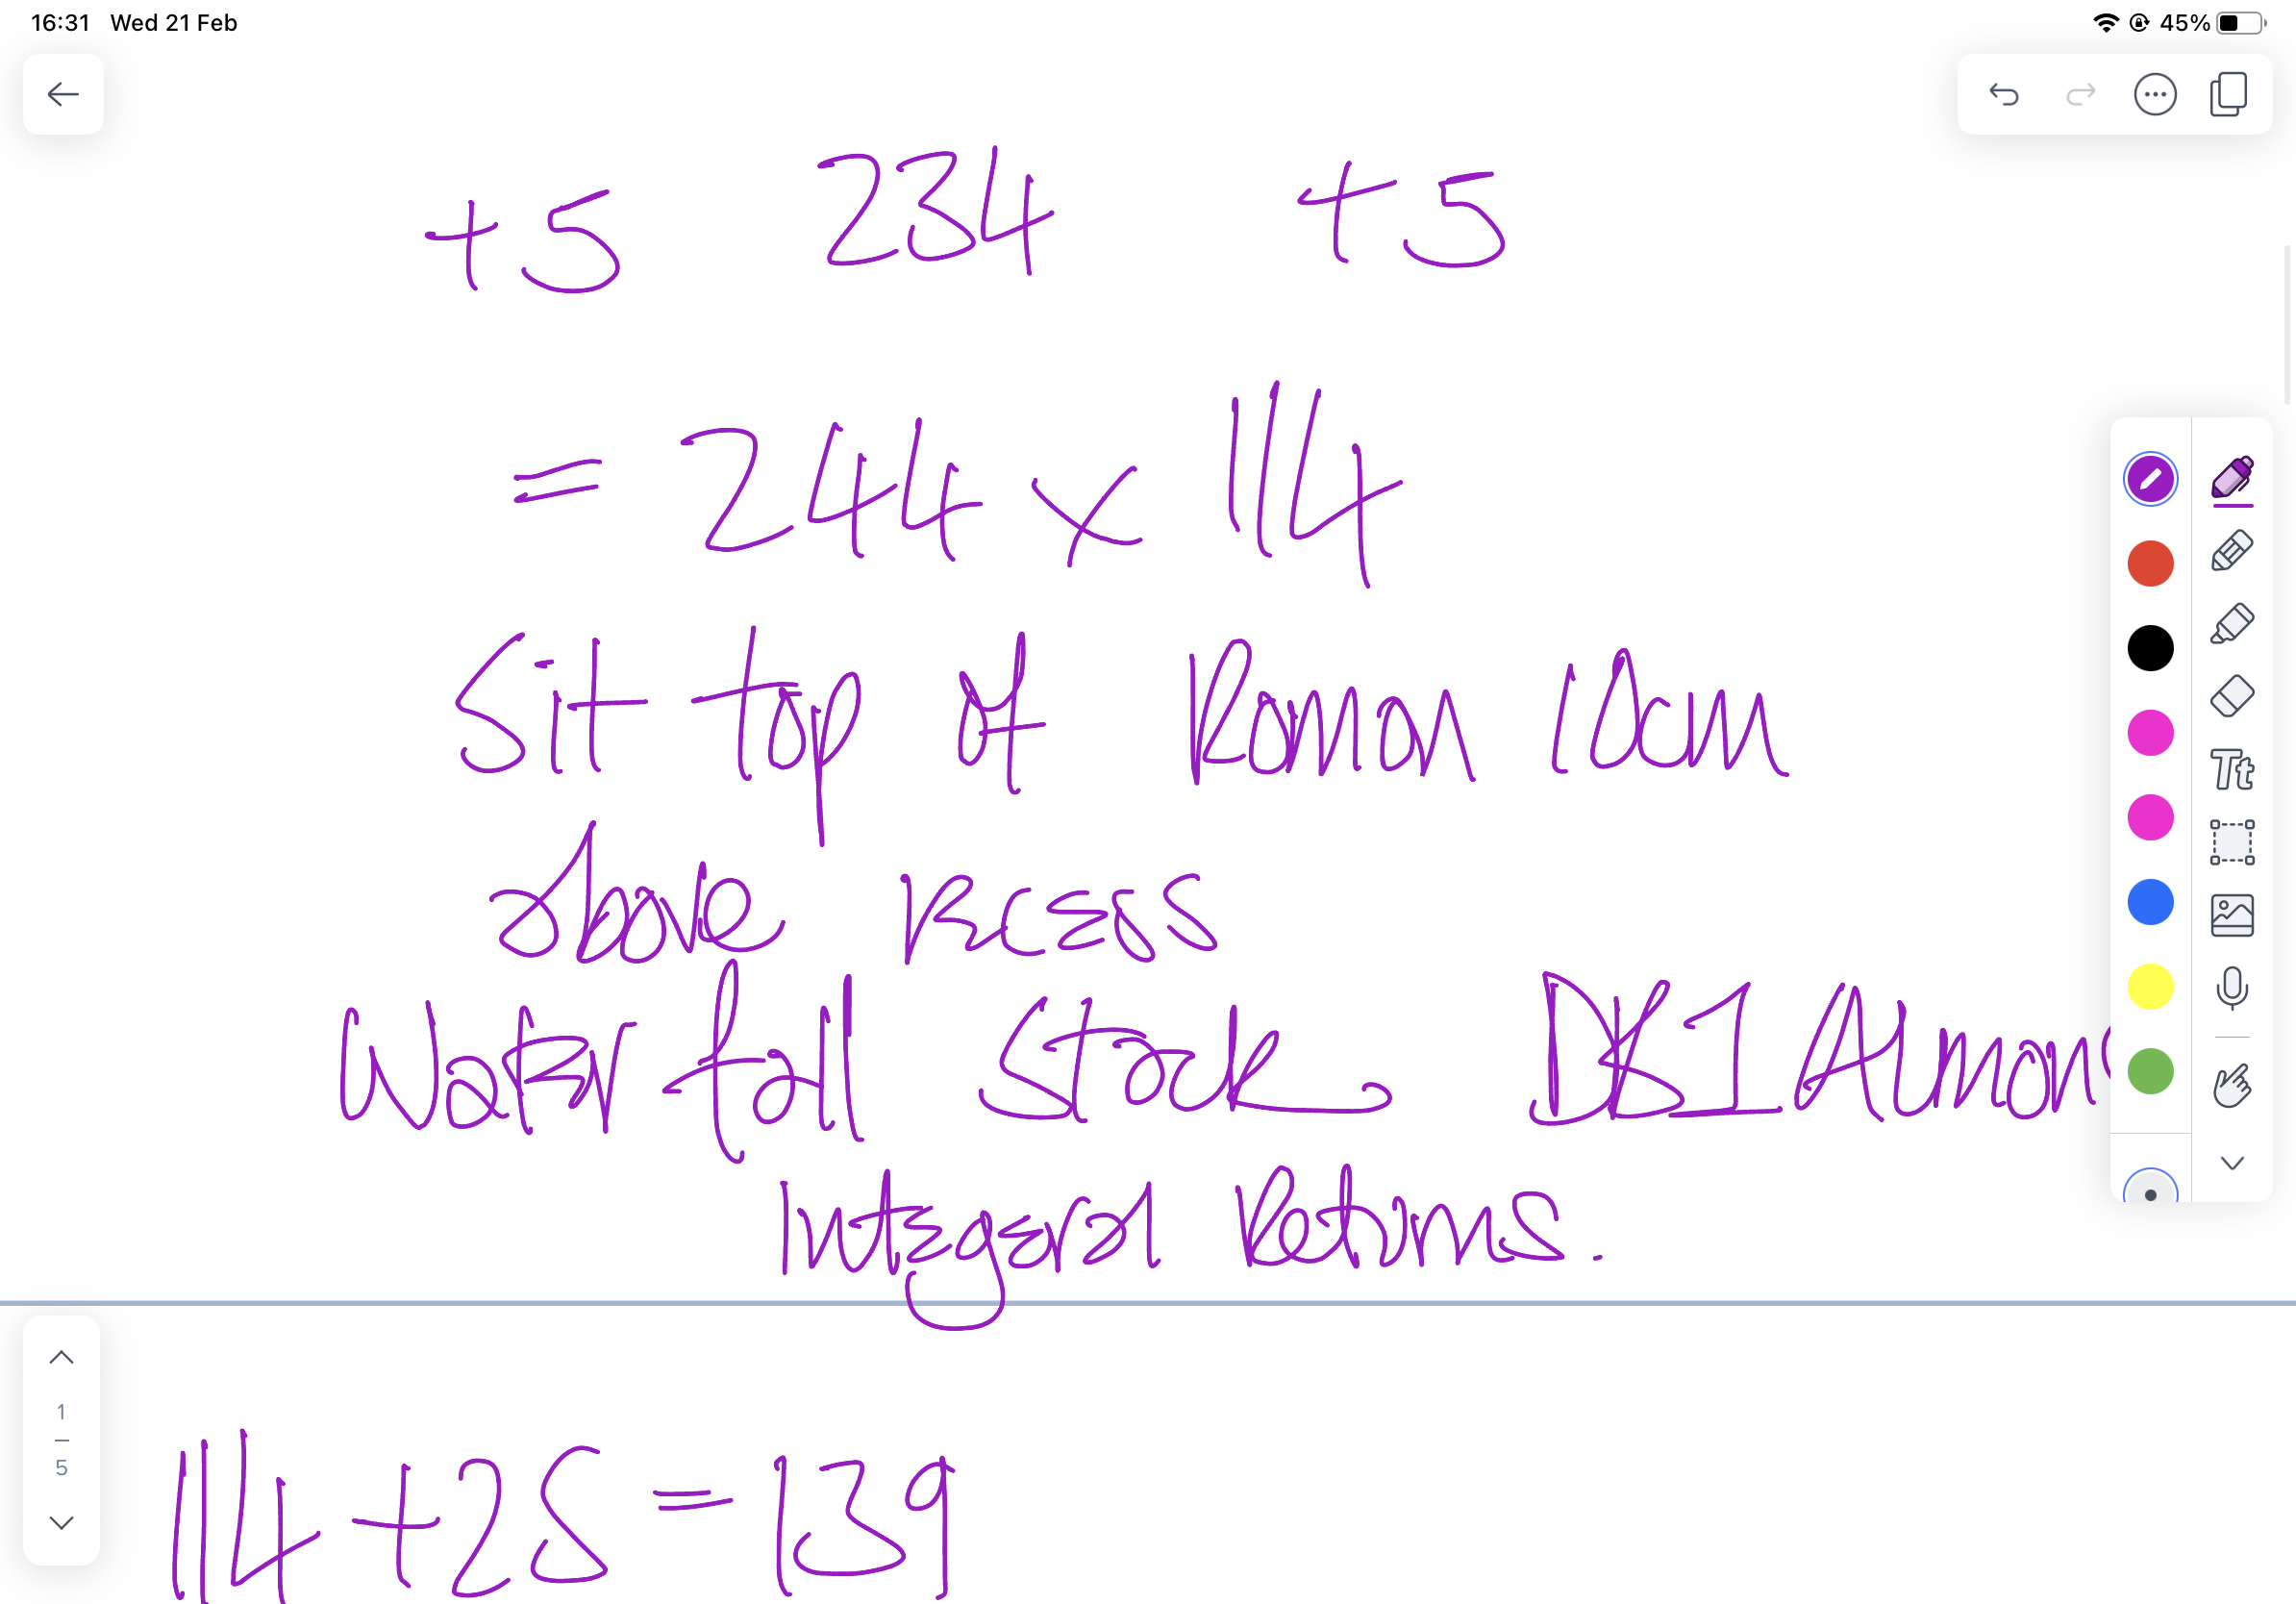 16:31 Wed 21 Feb 45%
+5 234 +5
= 244 x 114
Sit top of Roman 10cm
above Recess
Waterfall Stack DB1 Almon
Integeral Returns.
1
5
Tt
114 +25 = 139